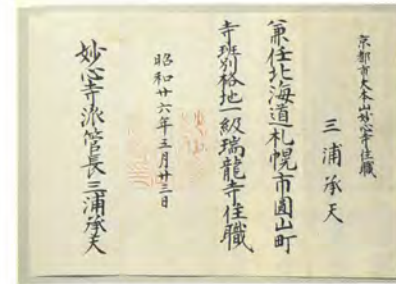 京都市大本山妙心寺住職
三浦承天
兼任北海道札幌市圓山町
寺班別格地一級瑞龍寺住職
昭和廿六年五月廿三日
妙心寺派管長三浦承天